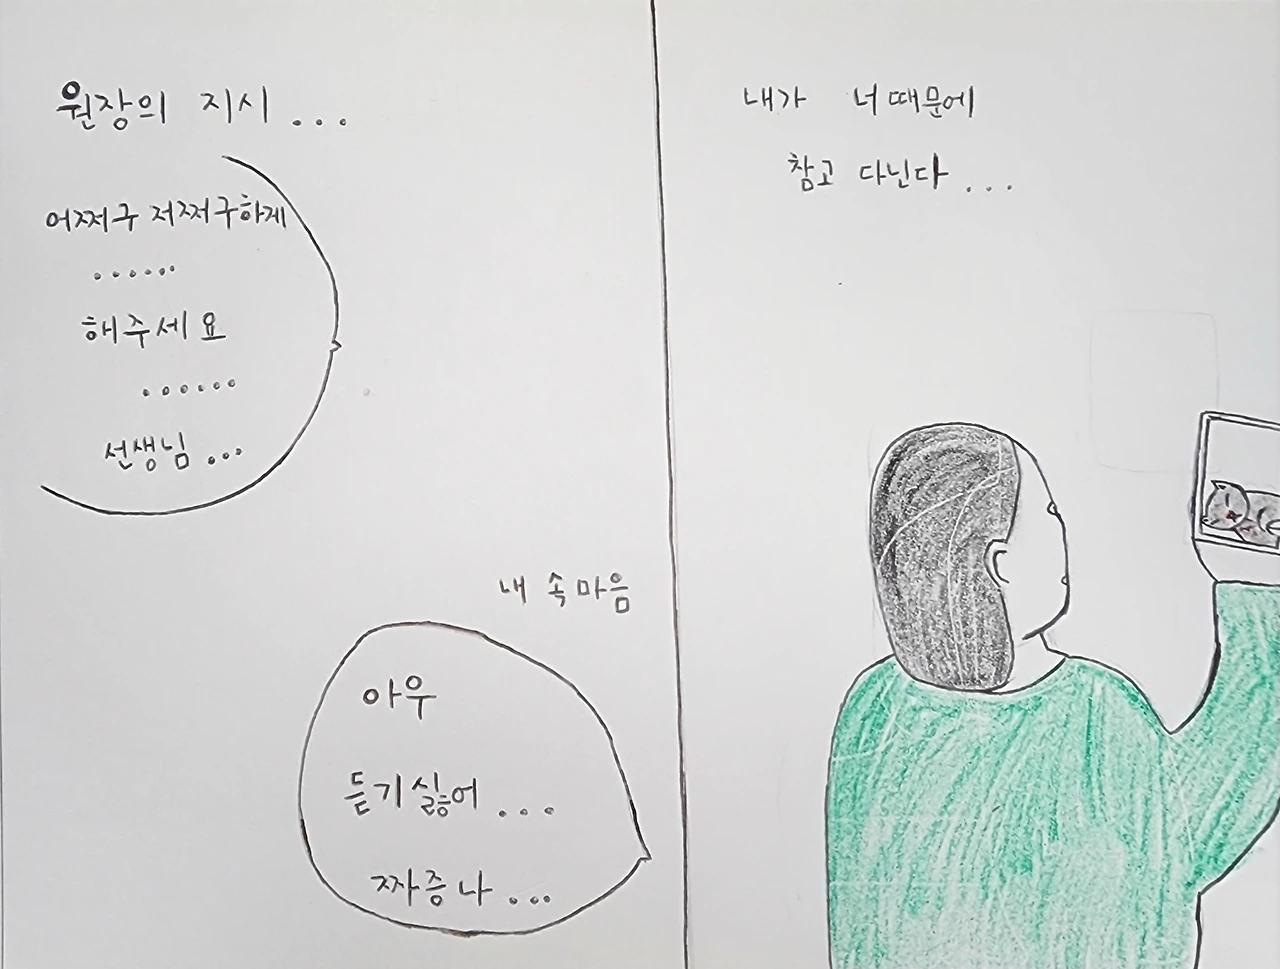 원장의 지시...
어쩌구 저쩌구하게
......
해주세요
......
선생님...
내 속마음
아우
듣기싫어...
짜증나...
내가 너때문에
참고 다닌다...